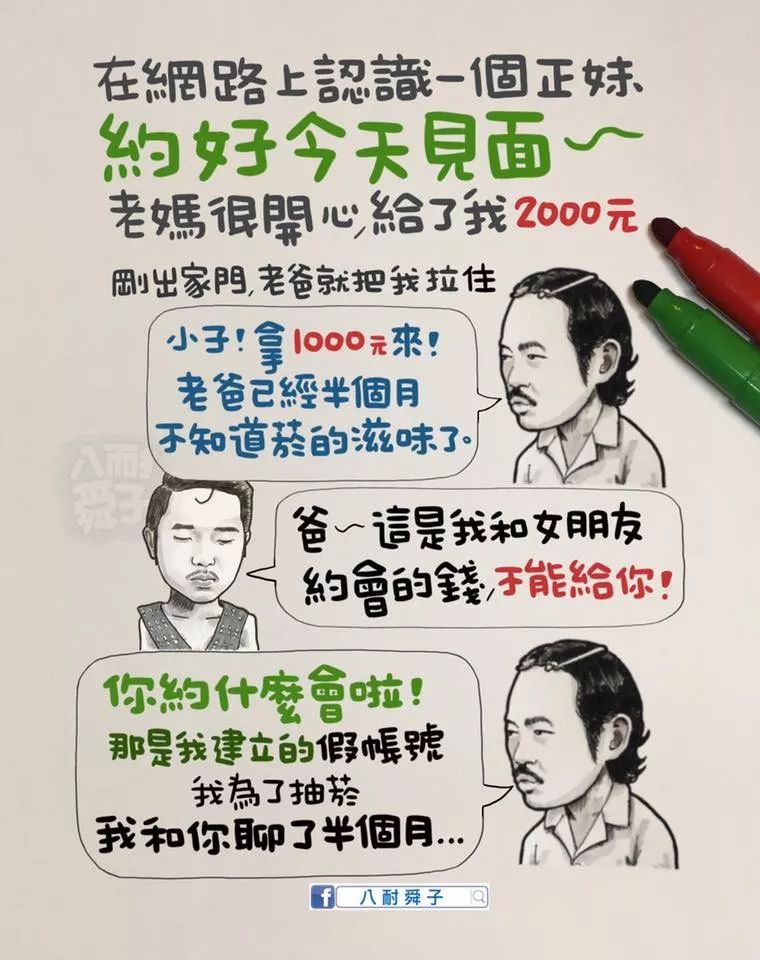 在網路上認識一個正妹、
約好今天見面～
老媽很開心,給了我2000元
剛出家門,老爸就把我拉住
小子!拿1000元來!
老爸已經半個月
不知道菸的滋味了。
八耐
舜子
爸～這是我和女朋友
約會的錢,不能給你!
你約什麼會啦!
那是我建立的假帳號
我為了抽菸
我和你聊了半個月...
f 八耐舜子